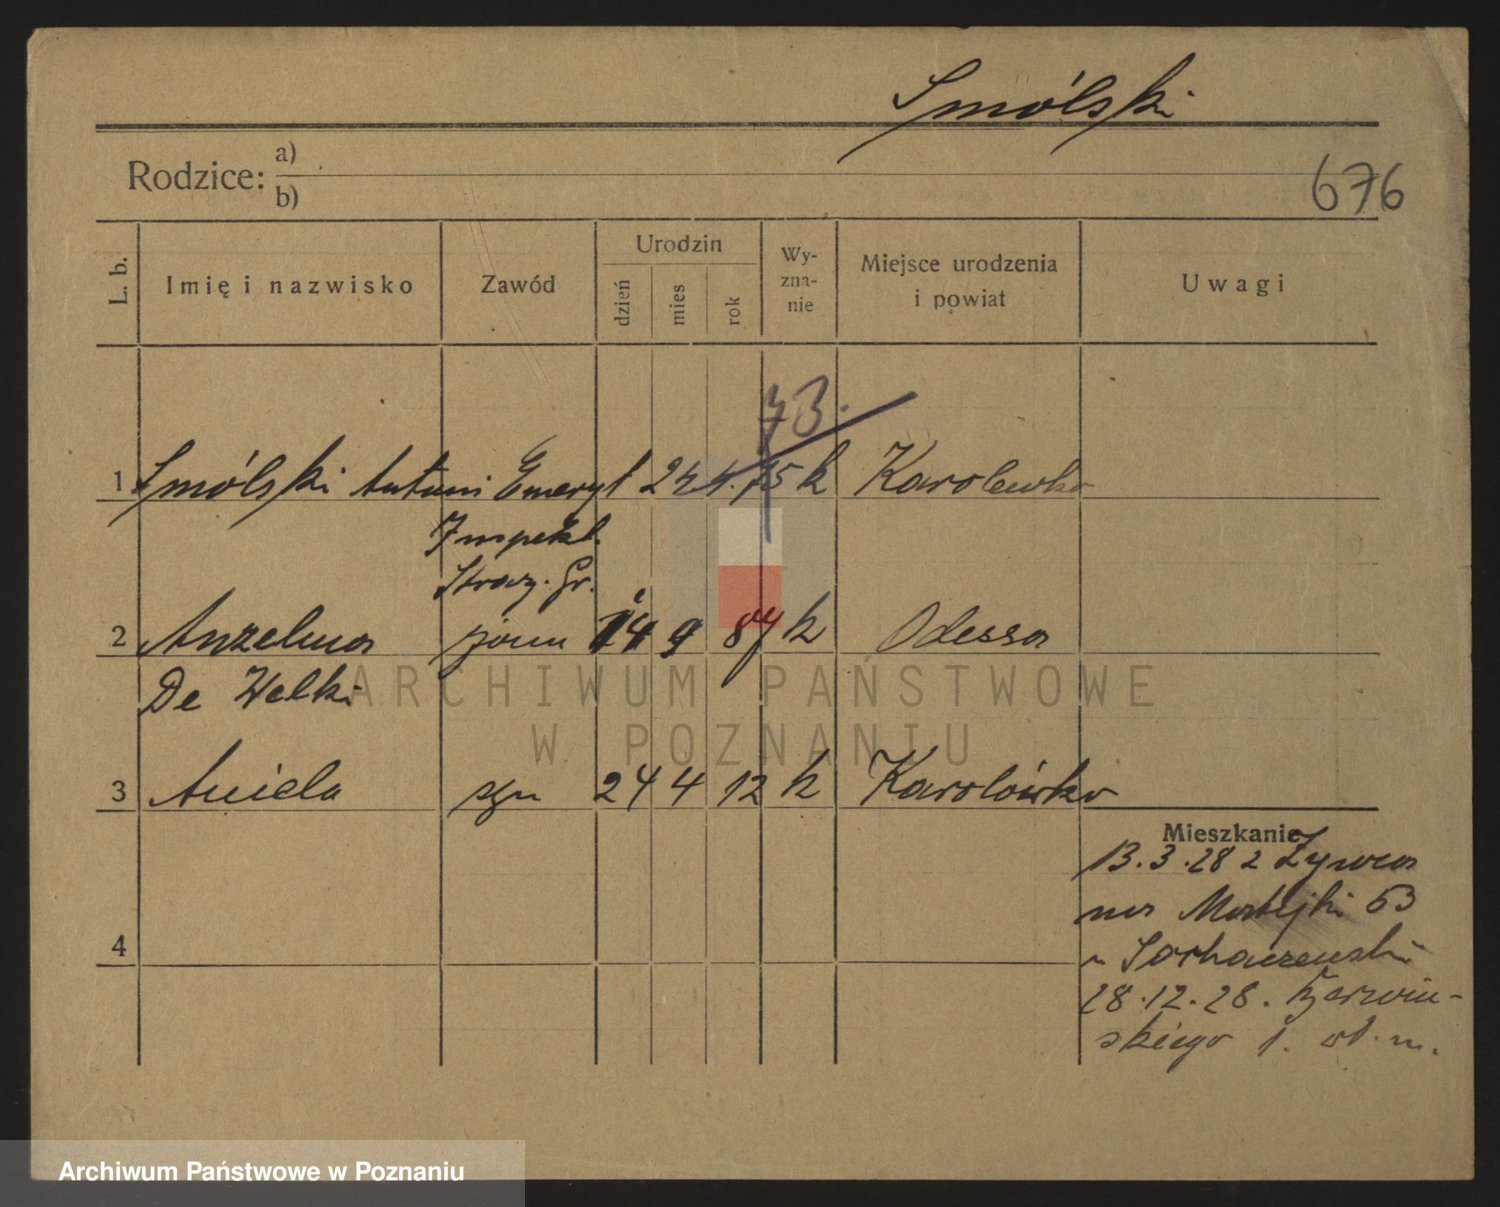 Smólski
Rodzice: a)
b)
676
L. b. Imię i nazwisko Zawód Urodzin dzień mies rok Wy-zna-nie Miejsce urodzenia i powiat Uwagi
73.
1 Smólski Antoni Emeryt 24 4. 75 k Karolewko
Inspekt.
Straży. Gr.
2 Anzelma żona 14 9 87 k Odessa
De Welki
3 Aniela 24 4 12 k Karolówka
Mieszkanie
13.3.28 z Żywca
na Matejki 53
u Sochaczewski
28.12.28.
skiego 1. wł. m.
4
ARCHIWUM PAŃSTWOWE
W POZNANIU
Archiwum Państwowe w Poznaniu